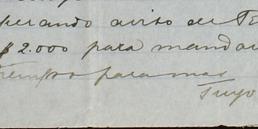 perando aviso de
$2.000 para mandar
tiempo para mas
Tuyo